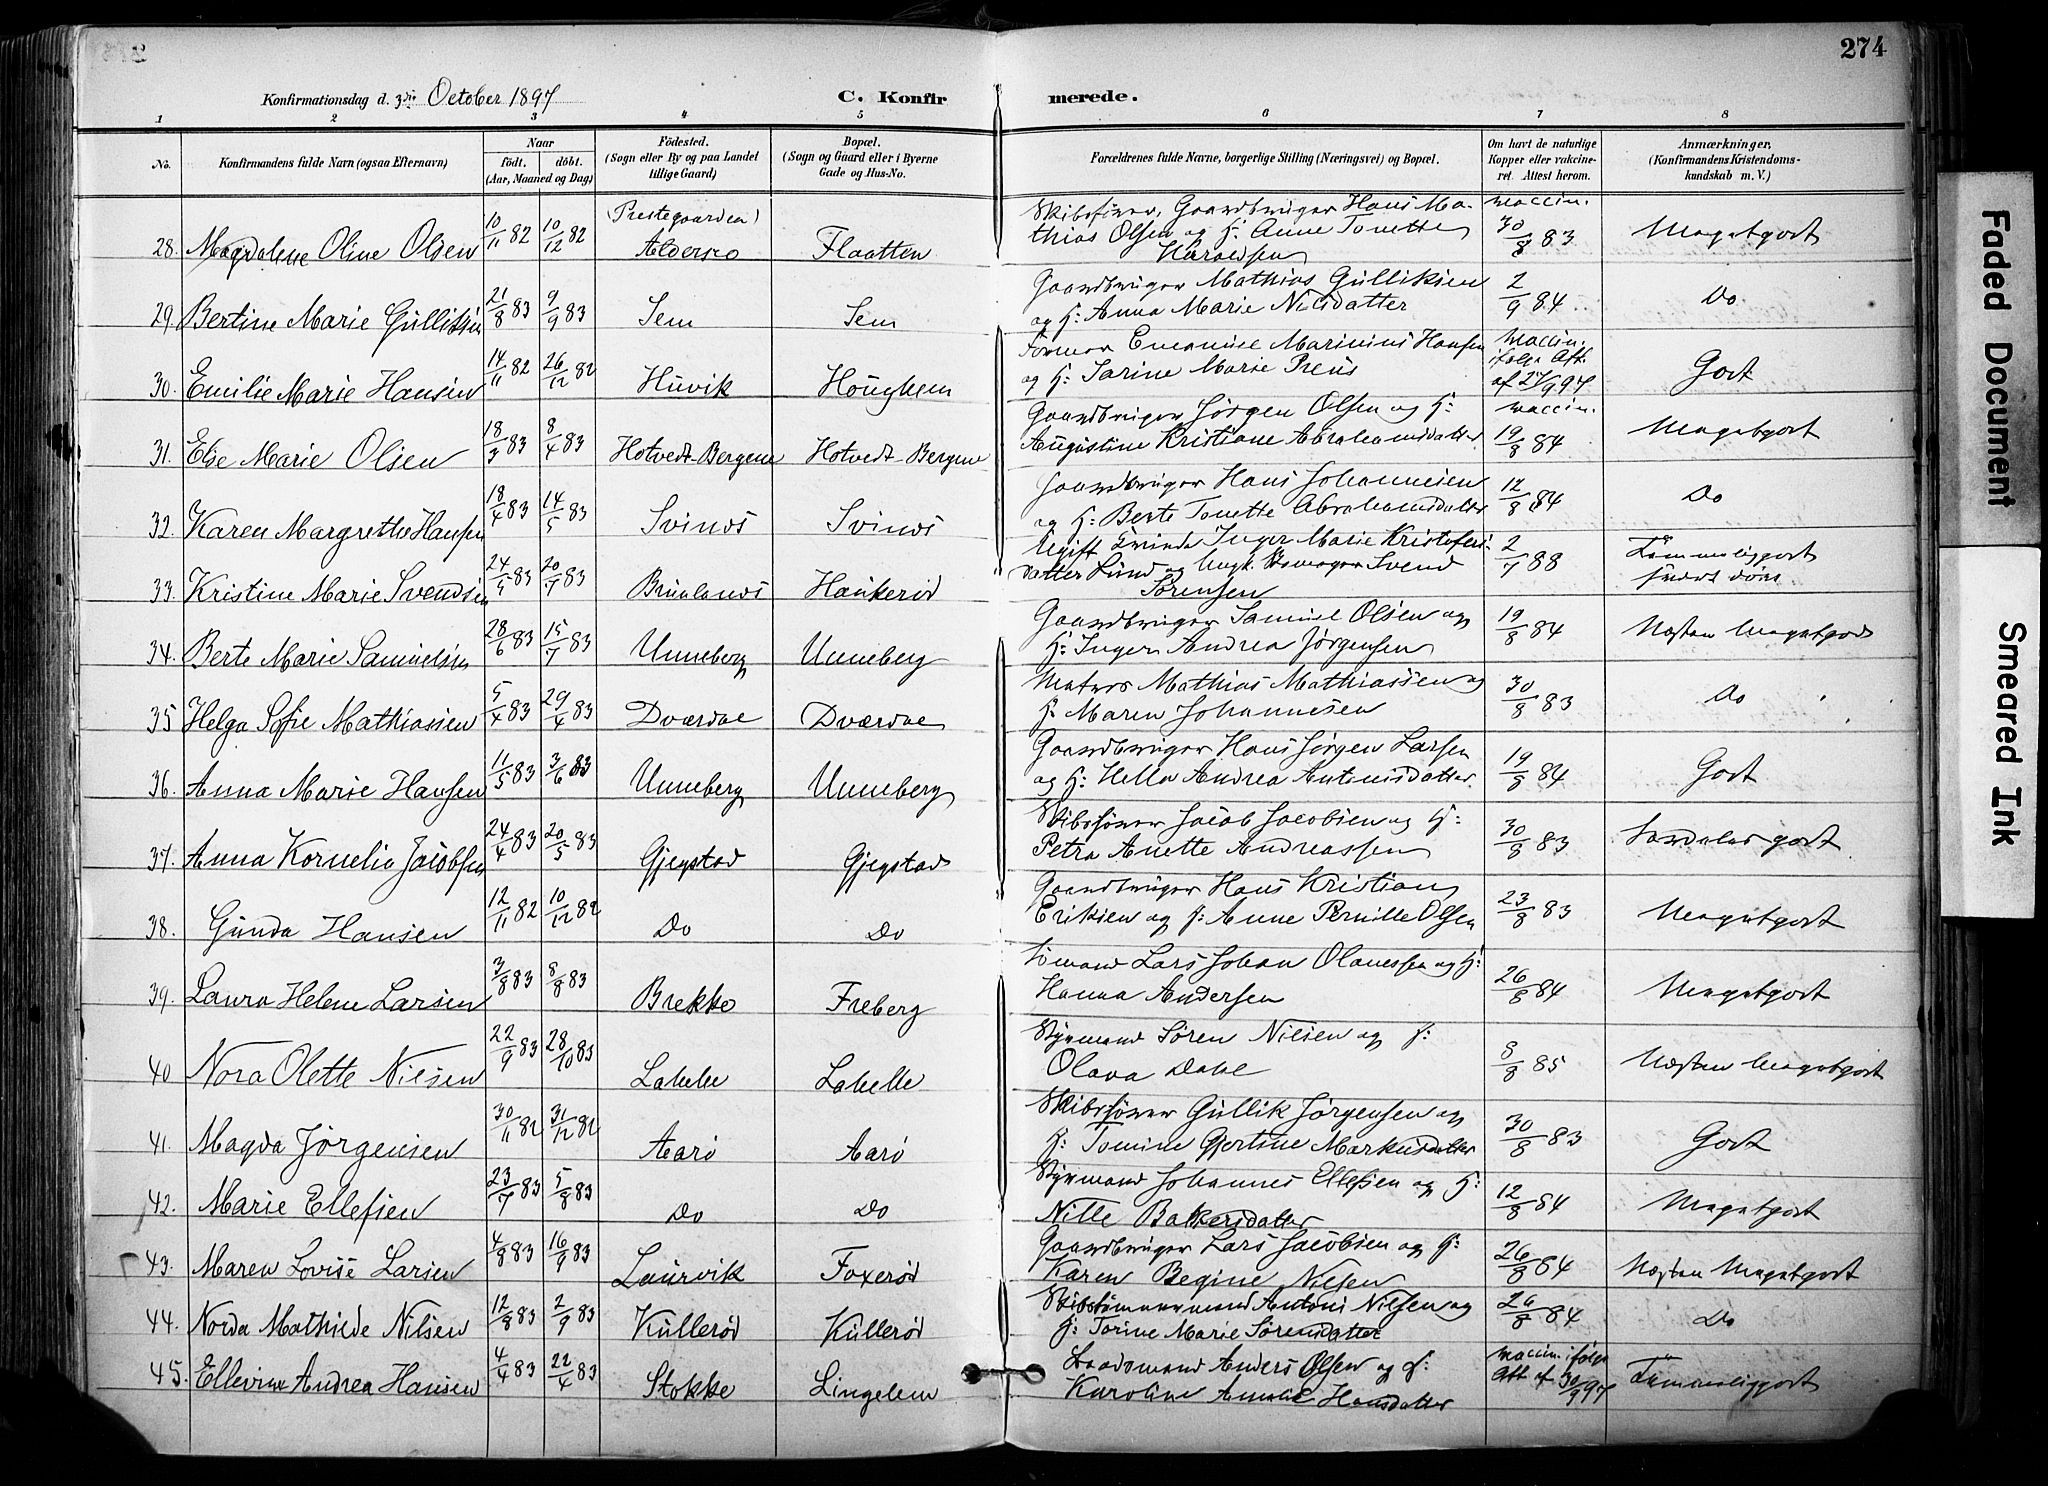 274
Konfirmationsdag d. 3die October 1897 C. Konfirmerede.
1 2 3 4 5 6 7 8
No. Konfirmandens fulde Navn (ogsaa Efternavn) Naar født. døbt. (Aar, Maaned og Dag) Fødested. (Sogn eller By og paa Landet tillige Gaard) Bopæl. (Sogn og Gaard eller i Byerne Gade og Hus-No. Forældrenes fulde Navne, borgerlige Stilling (Næringsvei) og Bopæl. Om havt de naturlige Kopper eller vakcineret. Attest herom. Anmærkninger. (Konfirmandens Kristendomskundskab m. V.)
28. Magdalene Oline Olsen 10/11 82 10/12 82 (Prestegaarden) Flaatten Skibsfører, Gaardbruger Hans Mathias Olsen og H: Anne Tonette vaccin. 30/8 83 Megetgodt
29. Bertine Marie Gulliksen 21/8 83 9/9 83 Sem Sem Gaardbruger Mathias Gulliksen og H: Anna Marie Nilsdatter 2/9 84 Do
30. Emilie Marie Hansen 14/11 82 26/12 82 Huvik Houghem Former Emanuel Marinius Hansen og H: Sarine Marie Preus vaccin. ifølge Att. af 27/9 97 Godt
31. Else Marie Olsen 18/3 83 8/4 83 Hotvedt-Bergene Hotvedt-Bergene Gaardbruger Jørgen Olsen og H: Augustine Kristiane Abrahamsdatter vaccin. 19/8 84 Megetgodt
32. Karen Margrethe Hansen 18/4 83 14/5 83 Svinøs Svinøs Gaardbruger Hans Johannesen og H: Berte Tonette Abrahamsdatter 12/8 84 Do
33. Kristine Marie Svendsen 24/5 83 20/7 83 Brunlanes Haukerød Ugift Kvinde Inger Marie Kristofersdatter Lund og Ungk. Svend Sørensen 2/7 88 Temmeliggodt
34. Berte Marie Samuelsen 28/6 83 15/7 83 Unneberg Unneberg Gaardbruger Samuel Olsen og H: Inger Andrea Jørgensen 19/8 84 Næsten Megetgodt
35 Helga Sofie Mathiassen 5/4 83 29/4 83 Dværdae Dværdae Matros Mathias Mathiassen og H: Maren Johannesen 30/8 83 Do
36. Anna Marie Hansen 11/5 83 3/6 83 Unneberg Unneberg Gaardbruger Hans Jørgen Larsen og H: Helle Andrea Antonisdatter 19/8 84 Godt
37. Anna Kornelia Jacobsen 24/4 83 20/5 83 Gjegstad Gjegstad Skibsfører Jacob Jacobsen og H: Petra Anette Andreassen 30/8 83 Særdeles godt
38. Gunda Hansen 12/11 82 10/12 82 Do Do Gaardbruger Hans Kristian Eriksen og H: Anne Pernille Olsen 23/8 83 Megetgodt
39. Laura Helene Larsen 3/8 83 8/8 83 Brekke Freberg Sømand Lars Johan Olaussen og H: Hanna Andersen 26/8 84 Megetgodt
40 Nora Olette Nilsen 22/9 83 28/10 83 Labelle Labelle Styrmand Søren Nilsen og H: Olava Dahl 8/8 85 Næsten Megetgodt
41. Magda Jørgensen 30/11 82 31/12 82 Aarø Aarø Skibsfører Gullik Jørgensen og H: Tomine Gjertine Markusdatter 30/8 83 Godt
42. Marie Ellefsen 23/7 83 5/8 83 Do Do Styrmand Johannes Ellefsen og H: Nille Bakkersdatter 12/8 84 Megetgodt
43. Maren Lovise Larsen 4/8 83 16/9 83 Laurvik Foxerød Gaardbruger Lars Jacobsen og H: Karen Begine Nilsen 26/8 84 Næsten Megetgodt
44. Norda Mathilde Nilsen 12/8 83 2/9 83 Kullerød Kullerød Skibstømmermand Antoni Nilsen og H: Torine Marie Sørensdatter 26/8 84 Do
45. Ellevine Andrea Hansen 4/4 83 22/4 83 Stokke Lingelem Anders Olsen og H: Karoline Amalie Hansdatter vaccin. ifølge Att. af 30/9 97 Temmeliggodt
Faded Document
Smeared Ink